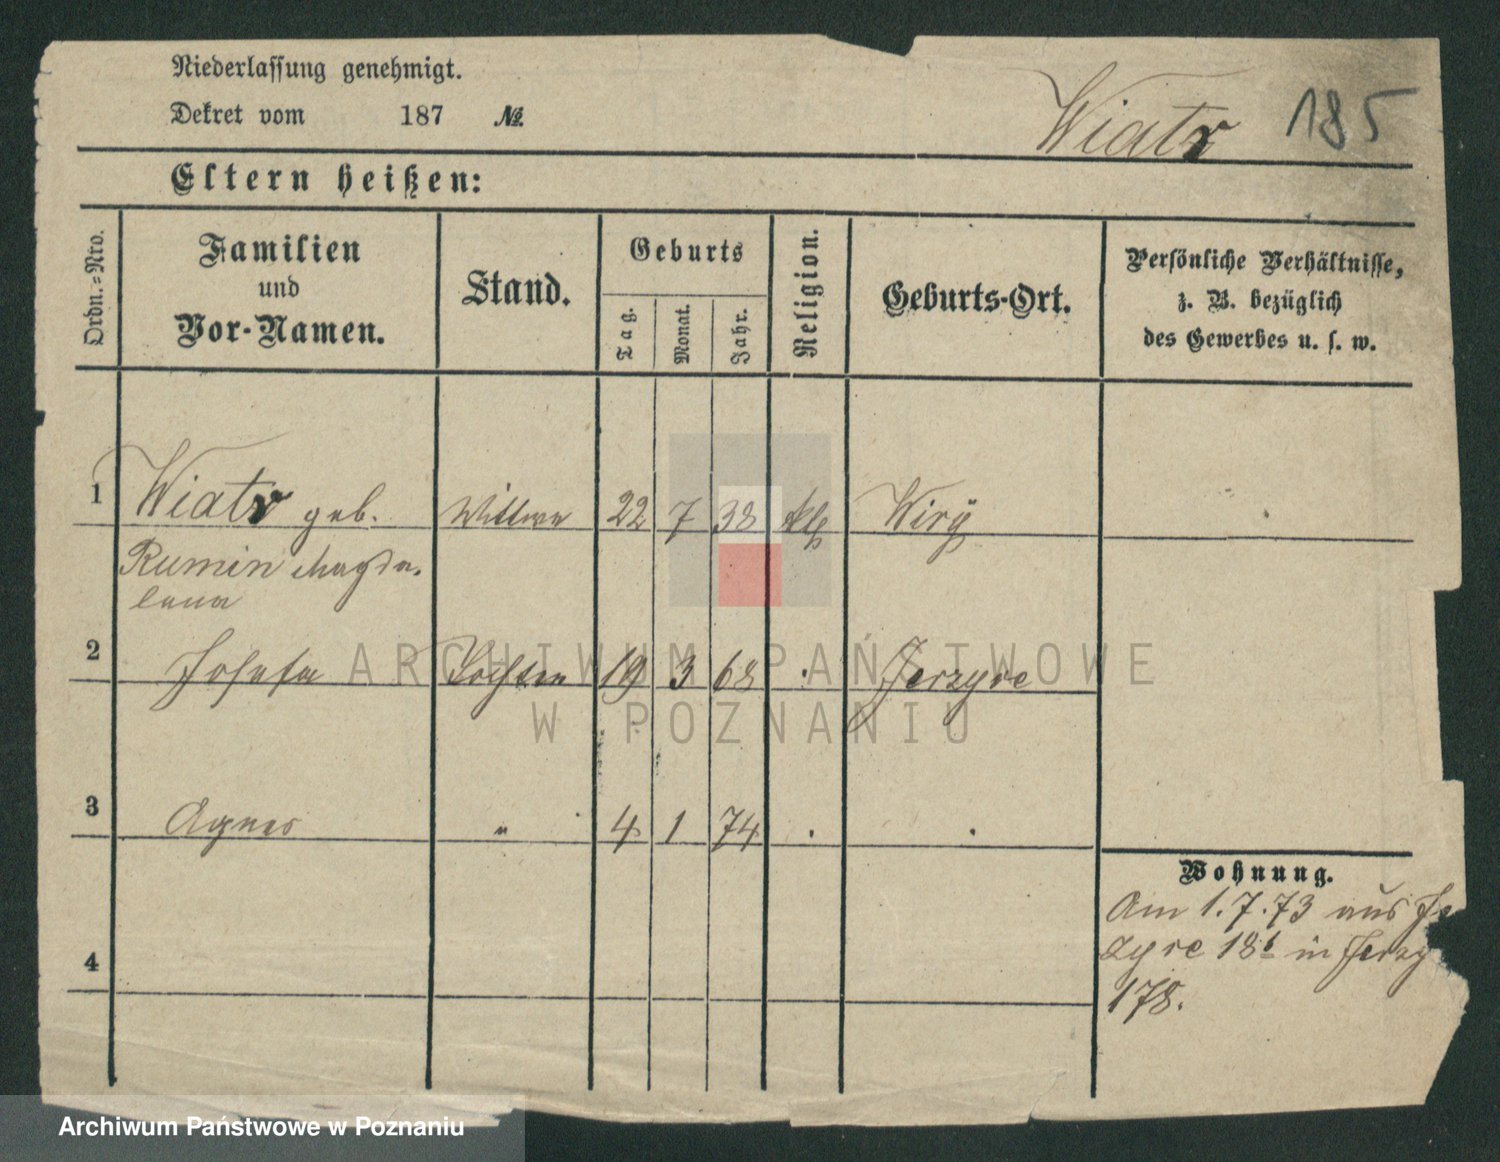 Niederlassung genehmigt.
Dekret vom 187 №.
Wiatr 185
Eltern heißen:
Ordn.-Nro.
Familien und Vor-Namen.
Stand.
Geburts
Tag.
Monat.
Jahr.
Religion.
Geburts-Ort.
Persönliche Verhältnisse,
z. B. bezüglich
des Gewerbes u. s. w.
1 Wiatr geb. Wittwe 22 7 38 kth Wiry
Rumin Magda-
lena
2 Josefa Tochter 19 3 68 . Jerzyce
ARCHIWUM PAŃSTWOWE
W POZNANIU
3 Agnes " 4 1 74 . .
Wohnung.
Am 1.7.73 aus Je
zyce 18b in Jerzy
178.
4
Archiwum Państwowe w Poznaniu